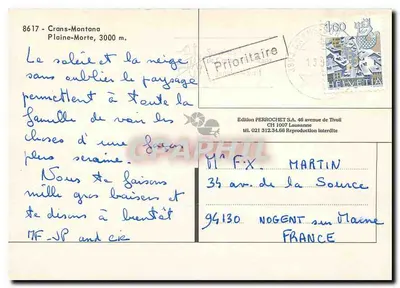 8617 - Crans-Montana
Plaine-Morte, 3000 m.
Prioritaire
HELVETIA
Edition PERROCHET S.A. 46 avenue de Tivoli
CH 1007 Lausanne
tél. 021 312.34.66 Reproduction interdite
Le soleil et la neige
sans oublier le paysage
permettent à toute la
famille de voir les
choses d'une façon
plus seraine.
Nous te faisons
mille gros baisers et
te disons à bientôt
MF-JP and
Mr F.X. MARTIN
34 av. de la Source
94130 NOGENT sur Marne
FRANCE